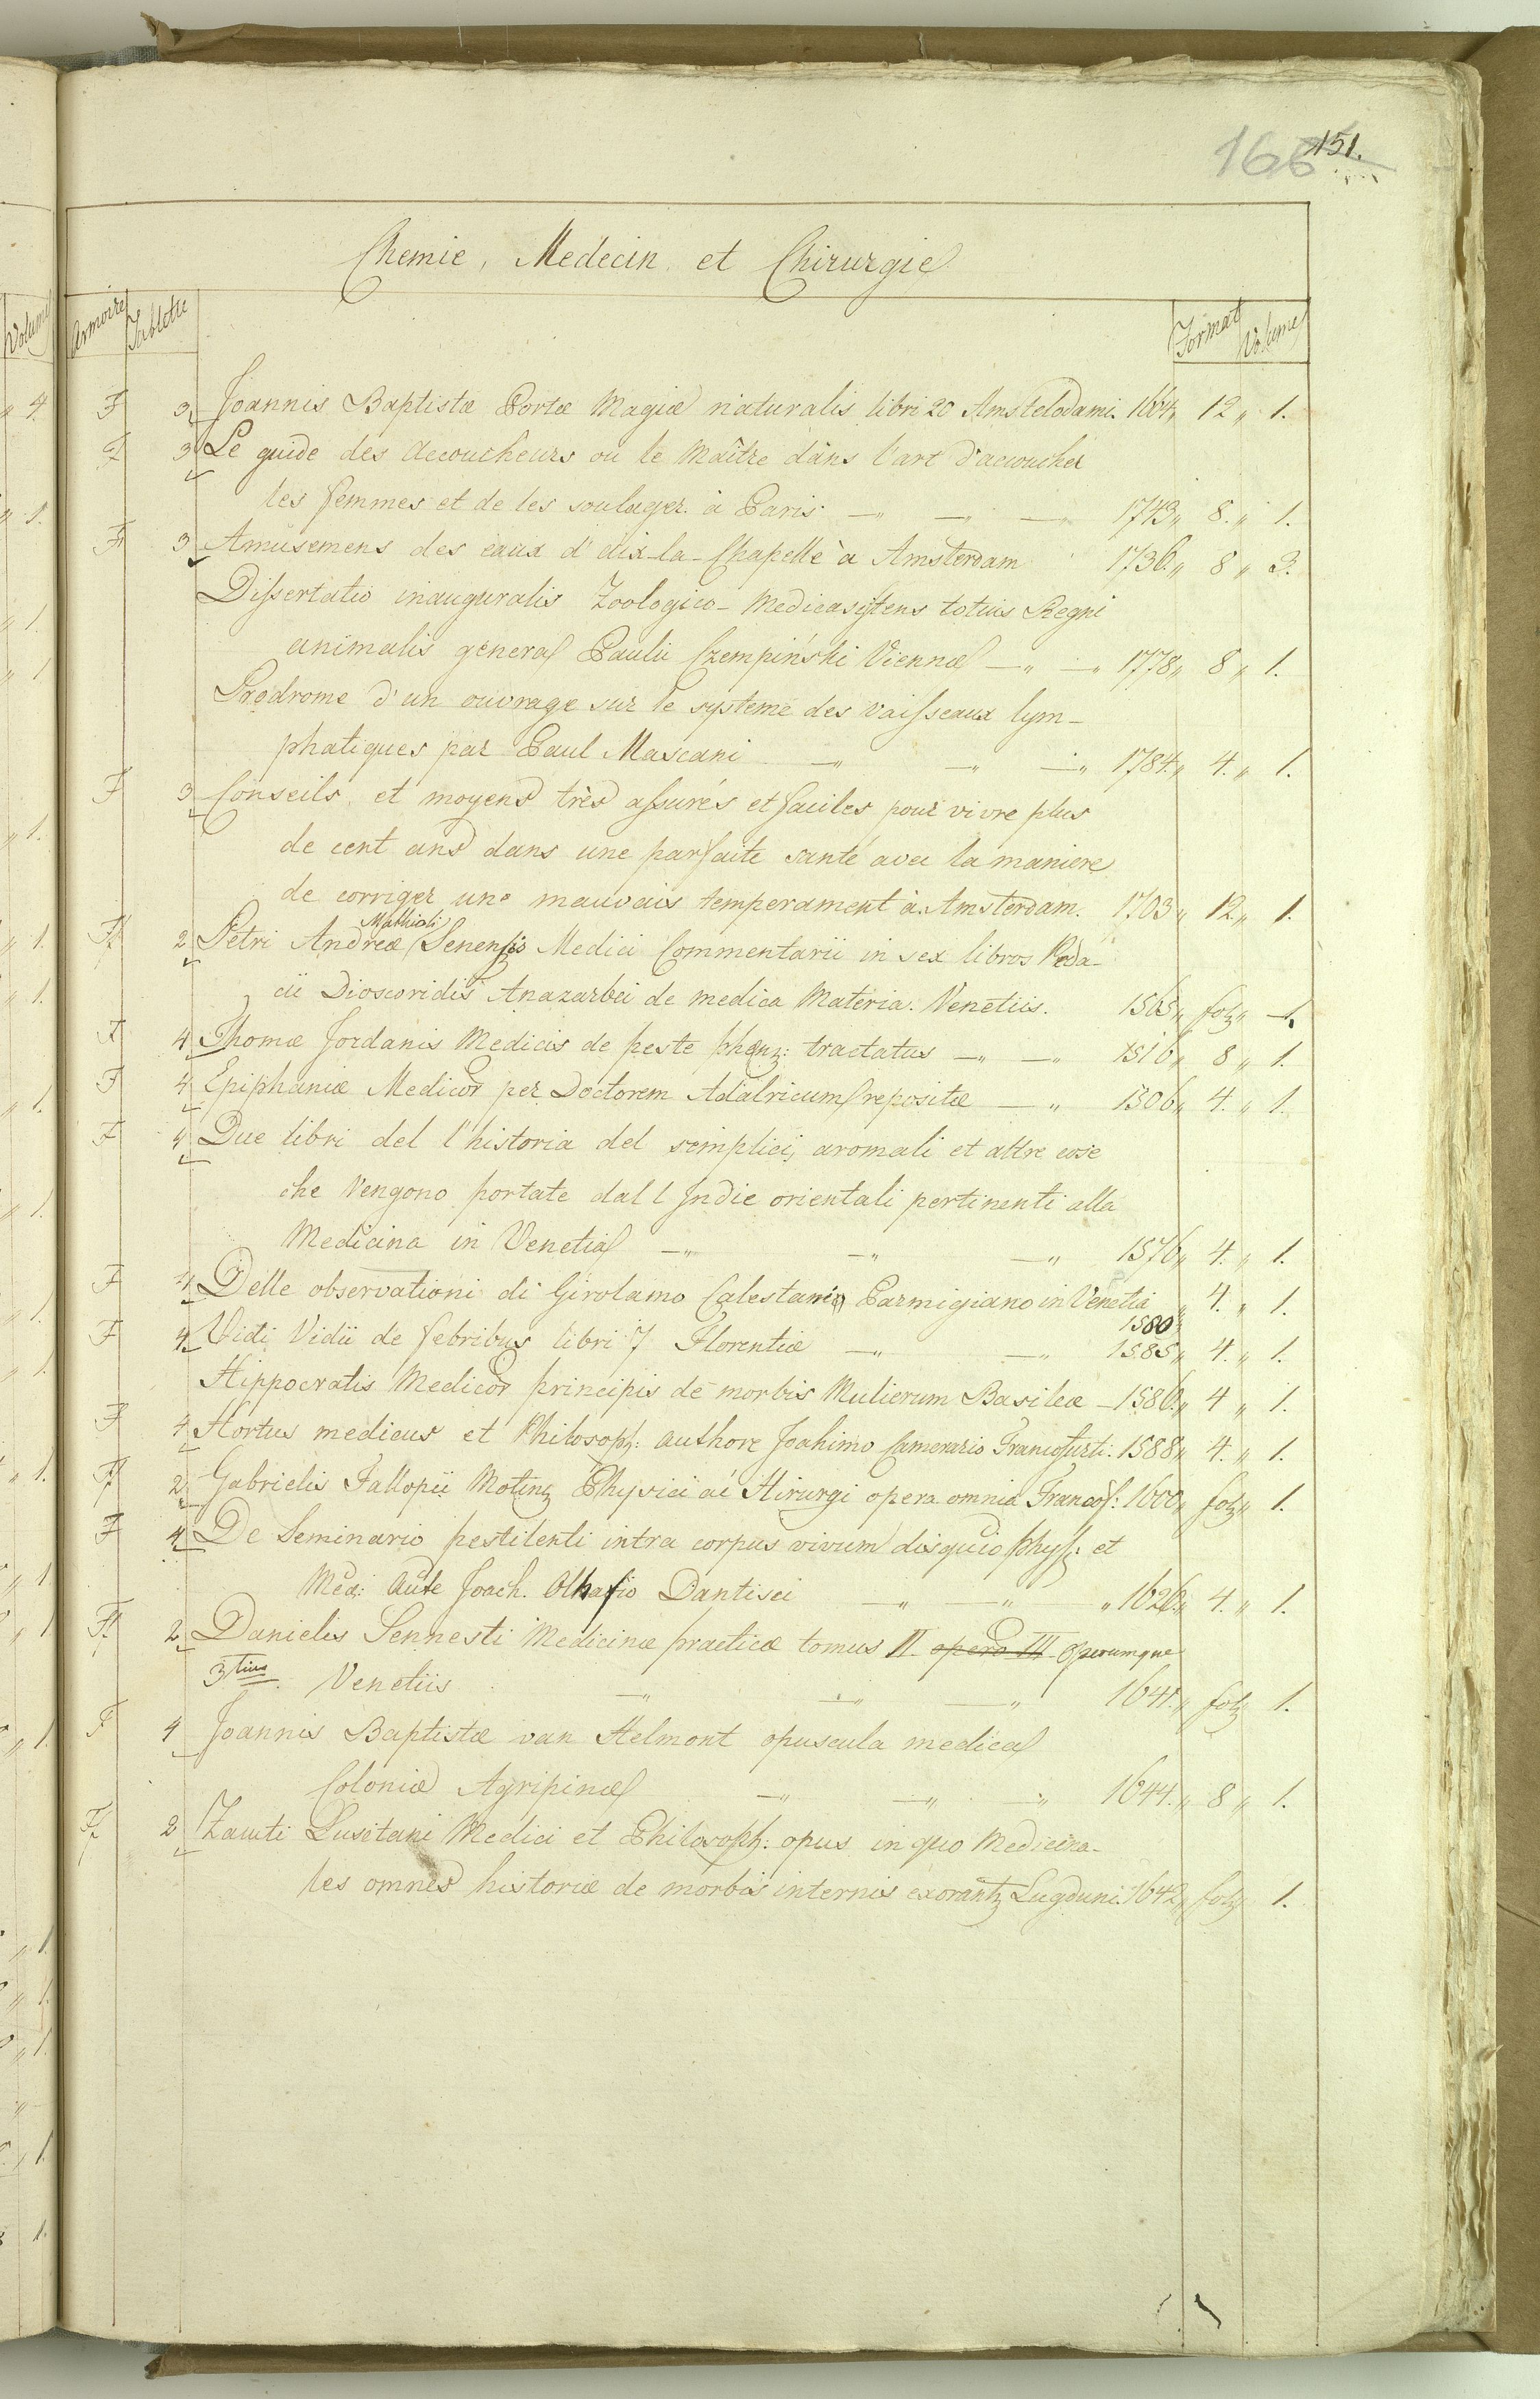 166 151.
Chemie, Medecin et Chirurgie
Volume Armoire Tablette Format Volume
F 3 Joannis Baptistæ Portæ Magiæ naturalis libri 20 Amstelodami. 1664 12 „ 1.
F 3 Le guide des Accoucheurs ou le Maître dans l'art d'accoucher
les femmes et de les soulager. à Paris —„ —„ — 1743„ 8. „ 1.
F 3 Amusemens des eaux d'aix-la-Chapelle à Amsterdam 1736.„ 8 „ 3.
Dissertatio inauguralis Zoologico-Medica sistens totius Regni
animalis genera Paulii Czempiński Viennæ —„ —„ 1778„ 8 „ 1.
Prodrome d'un ouvrage sur le systeme des vaisseaux lym-
phatiques par Paul Mascani —„ —„ —„ 1784.„ 4. „ 1.
F 3 Conseils et moyens très assurés et faciles pour vivre plus
de cent ans dans une parfaite santé avec la maniere
de corriger une mauvais temperament à Amsterdam. 1703 „ 12 „ 1.
Mathioli
F 2 Petri Andreæ Senensis Medici Commentarii in sex libros Peda-
cii Dioscoridis Anazarbei de medica Materia. Venetiis. 1565„ fol „ 1.
F 4 Thomæ Jordanis Medicis de peste phœn: tractatus —„ —„ 1516„ 8 „ 1.
F 4 Epiphaniæ Medicor per Doctorem Adalricum repositæ —„ 1506„ 4. „ 1.
F 4 Due libri del l'historia del semplici, aromali et altre cose
che Vengono portate dal l Indie orientali pertinenti alla
Medicina in Venetia —„ —„ —„ 1576„ 4. „ 1.
F 4 Delle observationi di Girolamo Calestani Parmigiano in Venetia „ 4. „ 1.
1580„
F 4 Vidi Vidii de febribus libri 7 Florentiæ —„ —„ 1585„ 4. „ 1.
Hippocratis Medicor principis de morbis Mulierum Basileæ — 1586.„ 4 „ 1.
F 4 Hortus medicus et Philosoph: authore Joahimo Camerario Francofurti. 1588„ 4. „ 1.
F 2 Gabrielis Fallopii Motinz Physici aé Hirurgi opera omnia Francof: 1600„ fol „ 1.
F 4 De Seminario pestilenti intra corpus vivum disquio phys: et
Med: Aute Joach. Olhafio Dantisci —„ —„ „ 1626„ 4. „ 1.
F 2 Danielis Sennesti Medicinæ practicæ tomus II opero III Operumque
3tius Venetiis —„ —„ —„ 1641.„ fol 1.
F 4 Joannis Baptistæ van Helmont opuscula medica
Coloniæ Agripinæ —„ —„ —„ 1644.„ 8 „ 1.
F 2 Zacuti Lusitani Medici et Philosoph: opus in quo Medicina-
les omnes historiæ de morbis internis exorantz Lugduni. 1642„ fol 1.